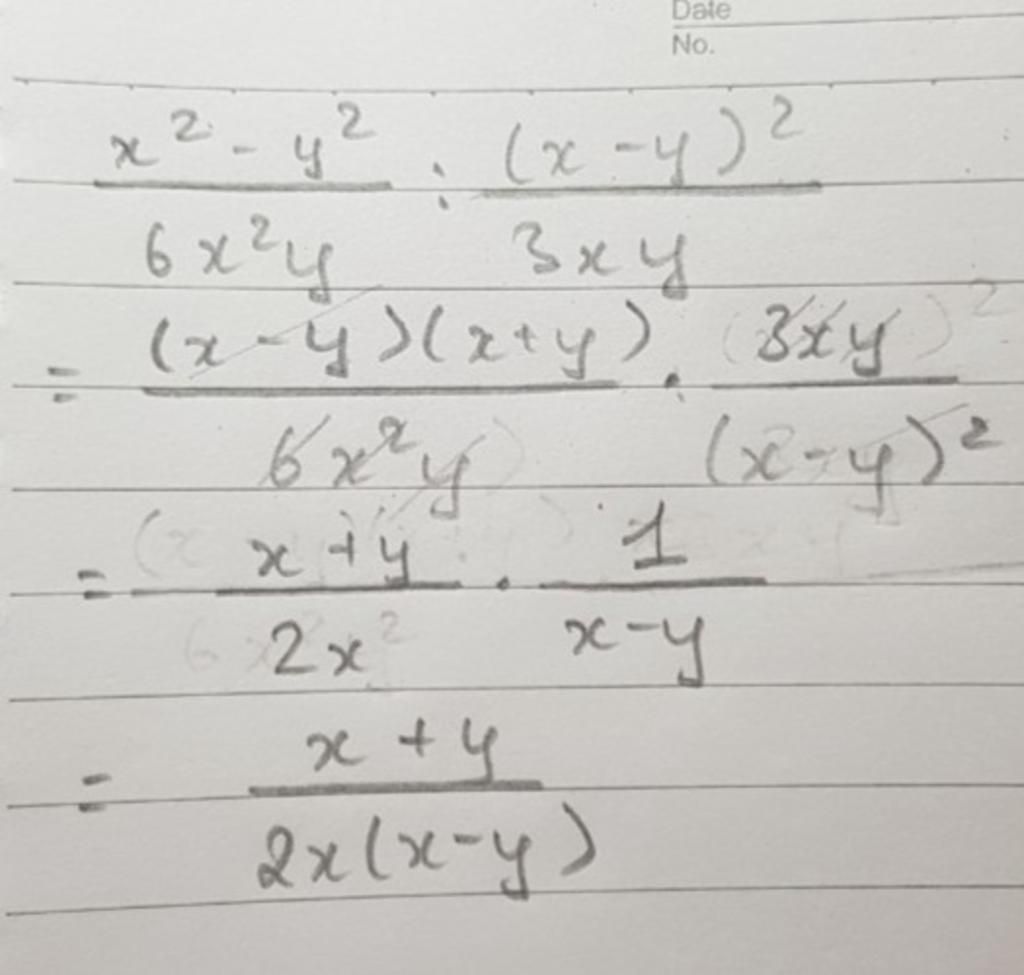 Date
No.
x² - y² / 6x²y : (x - y)² / 3xy
= (x - y)(x + y) / 6x²y · 3xy / (x - y)²
= x + y / 2x · 1 / x - y
= x + y / 2x(x - y)